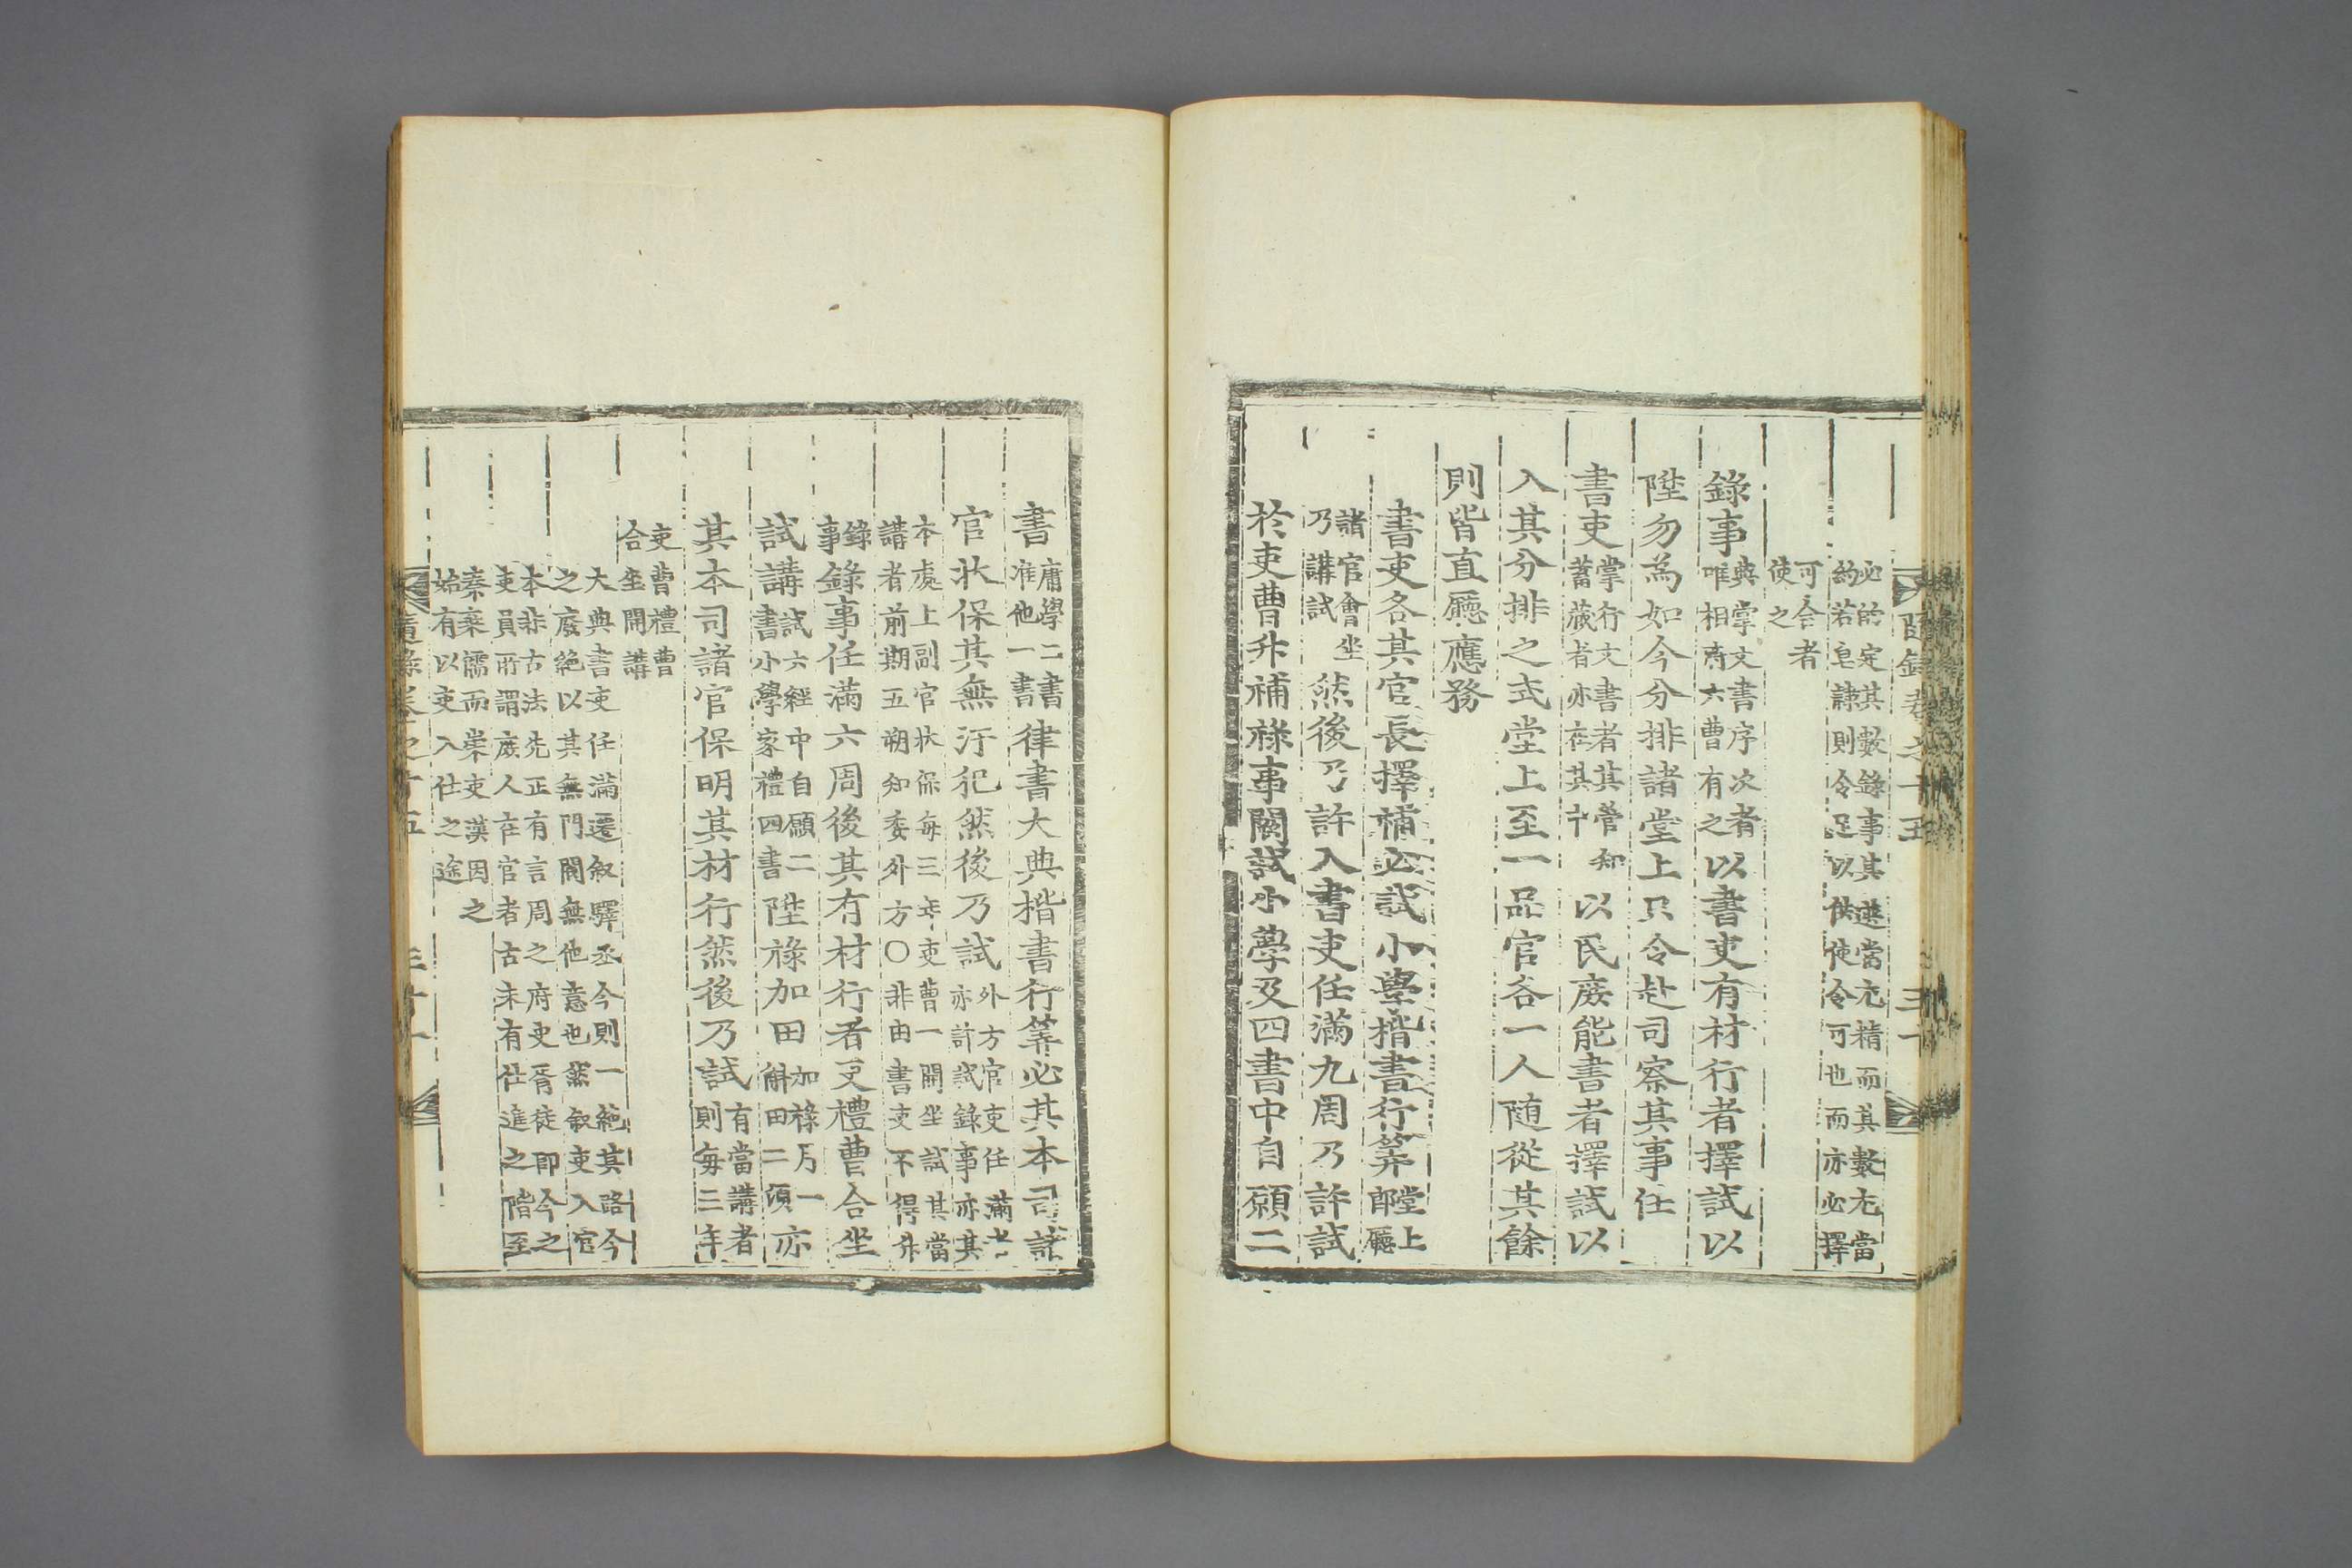 隨錄卷之十五 三十
必的定其數錄事其選當尤精而其數尤當
約若皂隷則令足以供使令可也而亦必擇
可合者
使之
錄事典掌文書序次者唯相府六曹有之以書吏有材行者擇試以
陞勿爲如今分排諸堂上只令赴司察其事任
書吏掌行文書者其管知蓄藏者亦在其中以民庶能書者擇試以
入其分排之式堂上至一品官各一人隨從其餘
則皆直廳應務
書吏各其官長擇補必試小學楷書行筭堂上郞廳
諸官會坐乃講試然後乃許入書吏任滿九周乃許試
於吏曹升補祿事闕試小學及四書中自願二
書庸學二書准他一書律書大典楷書行筭必其本司諸
官狀保其無汙犯然後乃試外方官吏任滿者亦許試錄事亦其
本處上副官狀保每三年吏曹一開坐試其當
講者前期五朔知委外方〇非由書吏不得升
錄事錄事任滿六周後其有材行者吏禮曹合坐
試講試六經中自願二書小學家禮四書陞祿加田加祿月一斛田二頃亦
其本司諸官保明其材行然後乃試有當講者則每三年
吏曹禮曹
合坐開講
大典書吏任滿遷敍驛丞今則一絶其路今
之廢絶以其無門閥無他意也然敍吏入官
本非古法先正有言周之府吏胥徒卽今之
吏員所謂庶人在官者古未有仕進之階至
秦棄儒而崇吏漢因之
始有以吏入仕之途
隨錄卷之十五 三十一